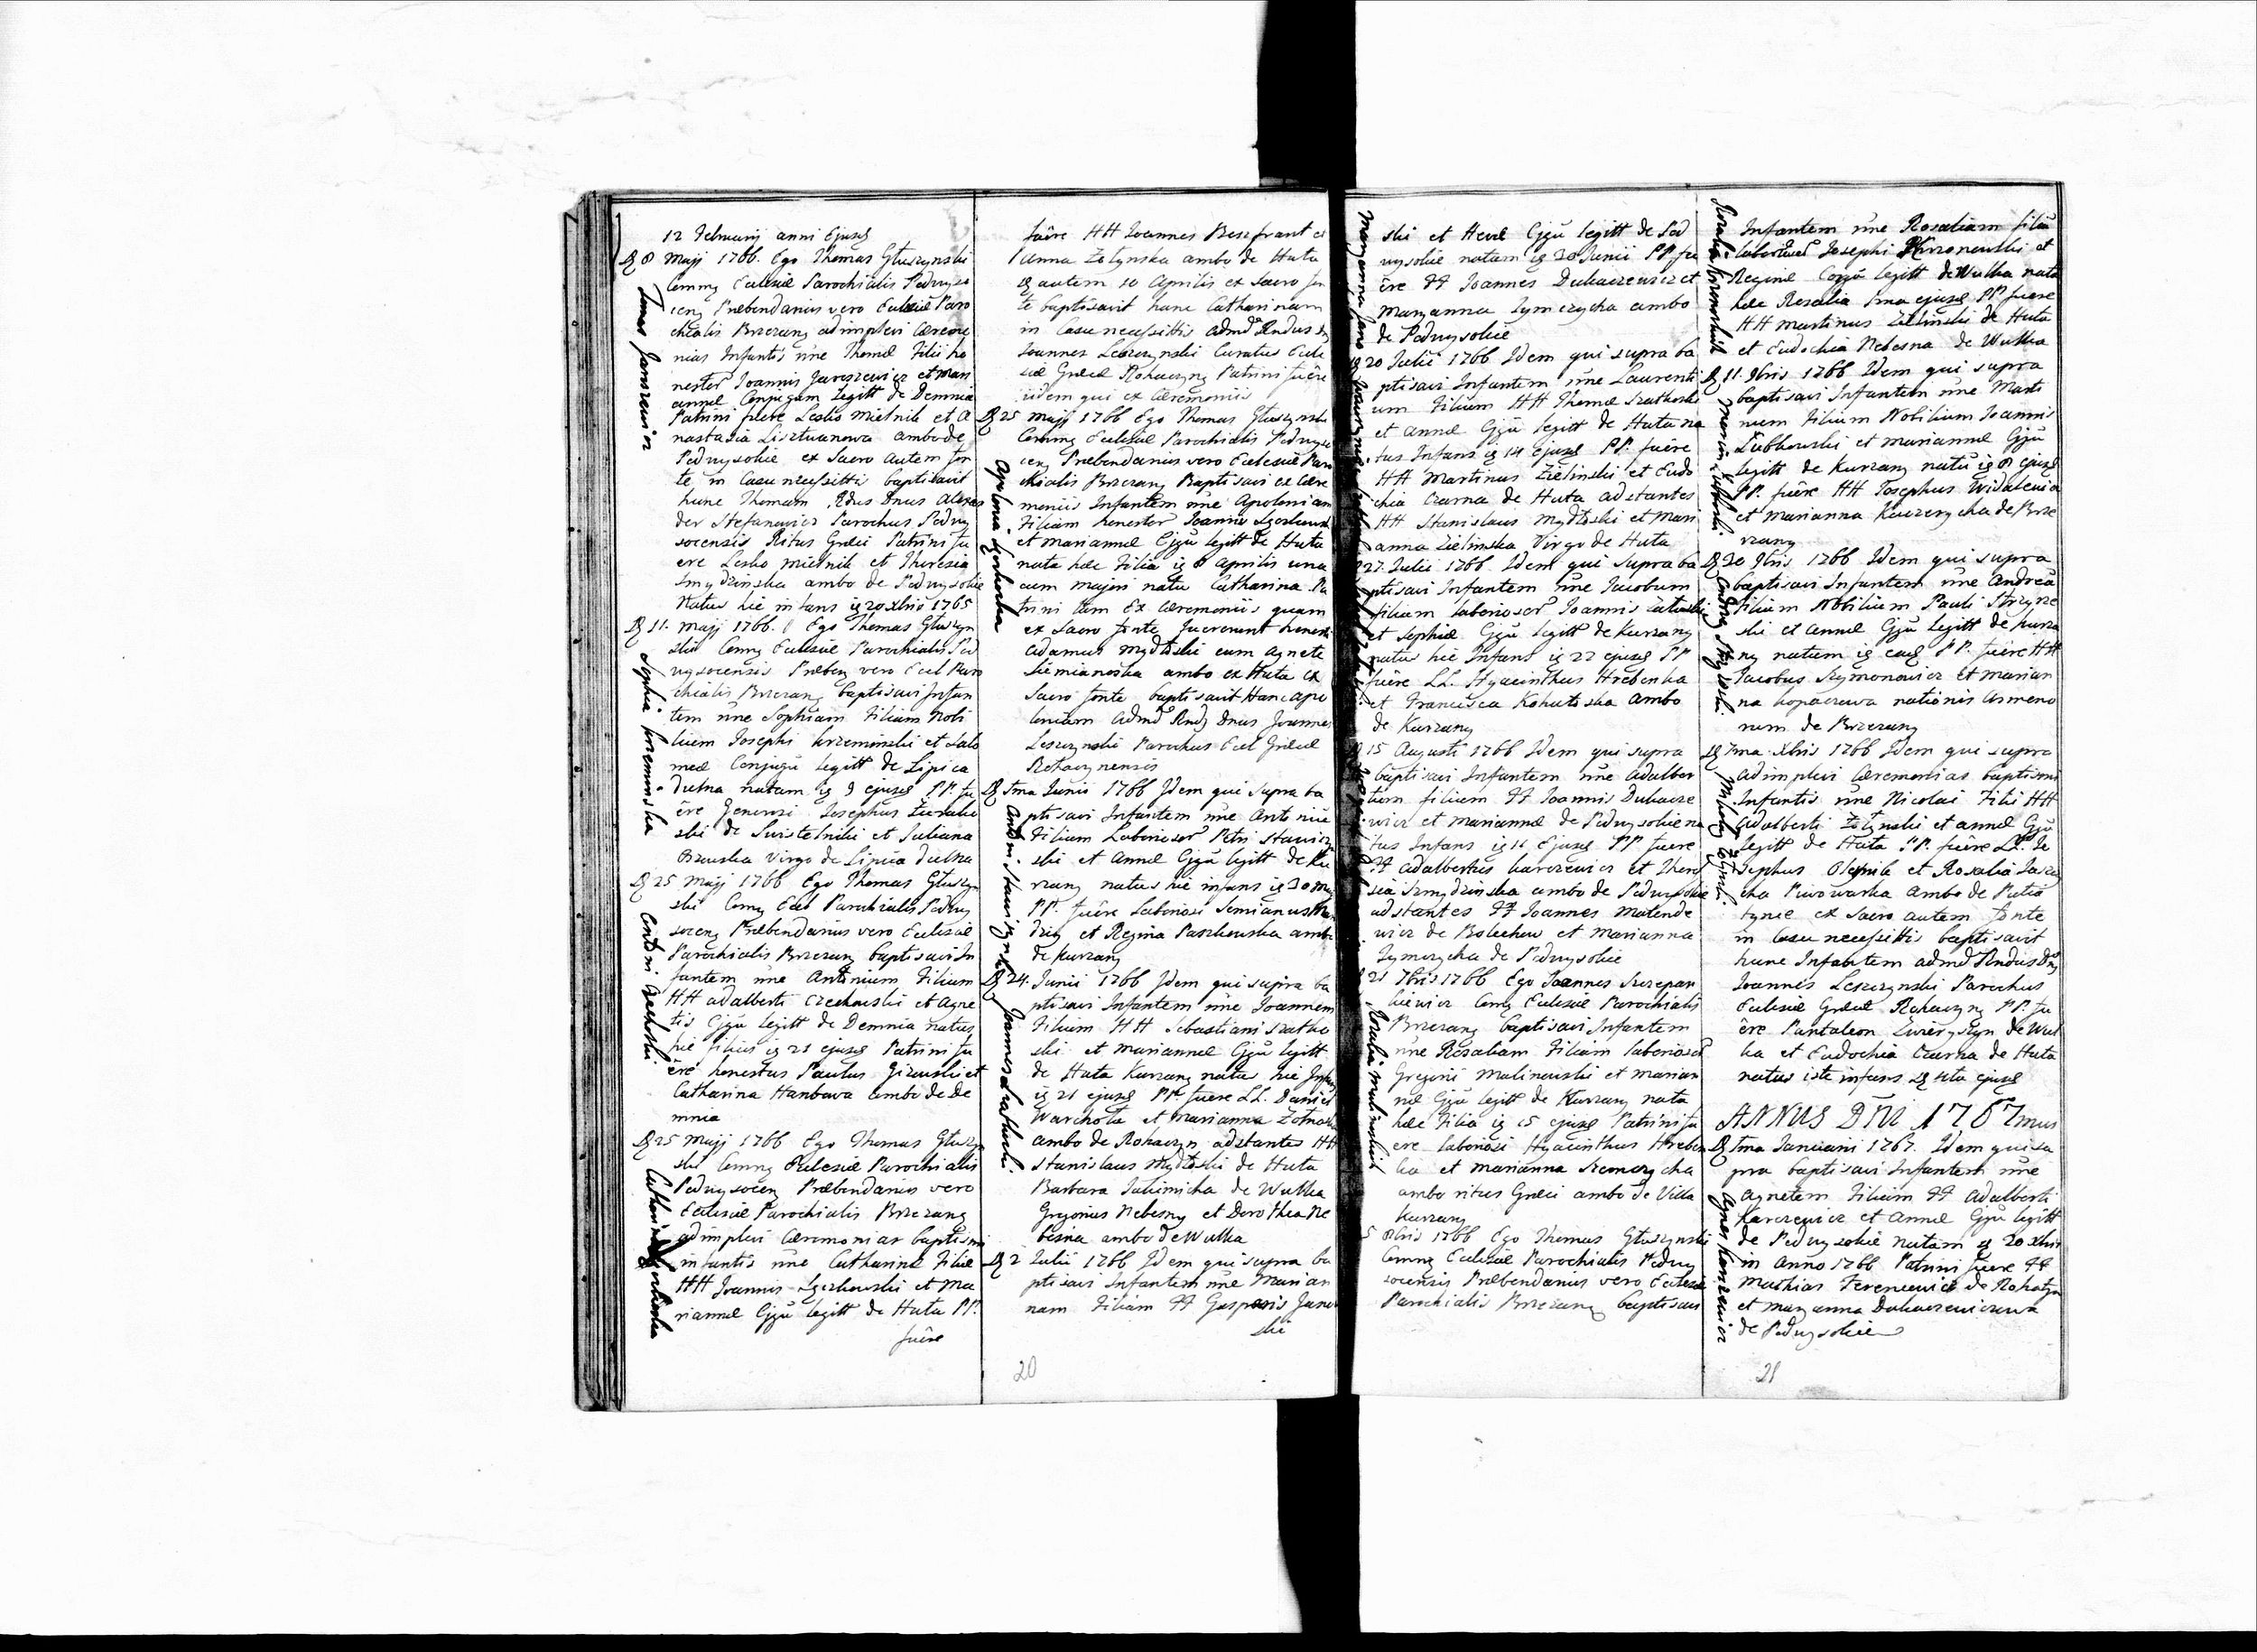 12 Februarij anni Ejusd
D 8 Maji 1766. Ego Thomas Głuszynski
Comm Ecclesiæ Parochialis Podwyso
cen Præbendarius vero Ecclesiæ Paro
chialis Brzezan adimplevi Cæremo
nias Infantis nñe Thomæ Filii ho
nestor Joannis Janszewicz et Mari
annæ Conjugum Legitt de Demnia
Patrini fuere Lesko Mielnik et A
nastazia Lisztwanowa ambo de
Podwysokie ex Sacro autem fon
te in Casu necessittis baptisavit
hunc Thomam Rdus Dnus Alexan
der Stefanowicz Parochus Podwy
socensis Ritus Græci Patrini fu
ere Lesko Mielnik et Theresia
Smydzinska ambo de Podwysokie
Natus hic infans 20 Xbris 1765
Tomas Janszewicz
D 11. Maji 1766. Ego Thomas Głuszyn
ski Comm Ecclesiæ Parochialis Pod
wysocensis Præben vero Eccl Paro
chialis Brzezan baptisavi Infan
tem nñe Sophiam Filiam Nobi
lium Josephi Krzeminski et Salo
meæ Conjugũ legitt de Lipica
Dulna natam 9 ejusd PP. fu
ere Generosi Josephus Zurako
ski de Swistelniki et Juliana
Virgo de Lipica Dulna
Sophia Krzeminska
D 25 Maji 1766 Ego Thomas Głuszyn
ski Comm Eccl Parochialis Podwy
socen Præbendarius vero Ecclesiæ
Parochialis Brzezan baptisavi In
fantem nñe Antonium Filium
HH Adalberti Czechowski et Agne
tis Cjgũ legitt de Demnia natus
hic filius 21 ejusd Patrini fu
ere honestus Paulus Gizowski et
Catharina Hanbowa ambo de De
mnia
Antoni Czechoski
D 25 Maji 1766 Ego Thomas Głuszyn
ski Comm Ecclesiæ Parochialis
Podwysocen Præbendarius vero
Ecclesiæ Parochialis Brzezan
adimplevi Cæremonias baptismi
infantis nñe Catharinæ Filiæ
HH Joannis Zgorkowski et Ma
riannæ Cjgũ legitt de Huta PP.
fuêre
fuêre HH Joannes Beszfrant et
Anna Zołynska ambo de Huta
autem 10 Aprilis ex Sacro fon
te baptisavit hanc Catharinam
in Casu necessittis Admd Rndus
Joannes Leszczynski Curatus Eccle
siæ Græcæ Rohaczyn Patrini fuêre
iidem qui ex Cæremoniis
D 25 Maji 1766 Ego Thomas Głuszynski
Comm Ecclesiæ Parochialis Podwyso
cen Præbendarius vero Ecclesiæ Paro
chialis Brzezan Baptisavi ex Cære
moniis Infantem nñe Apoloniam
Filiam honestor Joannis Zgorkowski
et Mariannæ Cjgũ legitt de Huta
nata hæc Filia 8 Aprilis una
cum majori natu Catharina Pa
trini tam Ex Cæremoniis quam
ex Sacro fonte fuerunt honesti
Adamus Mydłoski cum Agnete
Siemianoska ambo ex Huta ex
Sacro fonte baptisavit Hanc Apo
loniam Admd Rnd Dnus Joannes
Leszczynski Parochus Eccl Græcæ
Rohaczynensis
D 1ma Junii 1766 Idem qui supra ba
ptisavi Infantem nñe Antoniũ
Filium Laboriosor Petri Stawiczn
ski et Annæ Cjgũ legitt de Ku
rzany natus hic infans 30 Maj
PP. fuêre Laboriosi Semianus
et Regina Paszkowska ambo
de Kurzany
D 24. Junii 1766 Idem qui supra ba
ptisavi Infantem nñe Joannem
Filium HH Sebastiani Szatko
ski et Mariannæ Cjgũ legitt
de Huta Kurzany natus hic Infans
21 ejusd PP fuere LL. Daniel
Warchoła et Marianna
ambo de Rohaczyn adstantes HH
Stanislaus Mydłoski de Huta
Barbara Jakimicha de Wulka
Gregorius Nebesny et Dorothea Ne
besna ambo de Wulka
D 2 Julii 1766 Idem qui supra ba
ptisavi Infantem nñe Marian
nam Filiam HH Gasparis Jano
ski
20
ski et Hevæ Cjgũ legitt de Pod
wysokie natam 20 Junii PP fu
ere HH Joannes Dukaczewicz et
Maryanna Tymczycha ambo
de Podwysokie
20 Julii 1766 Idem qui supra ba
ptisavi Infantem nñe Laurenti
um Filium HH Thomæ Szatkoski
et Annæ Cjgũ legitt de Huta na
tus Infans 14 ejusd PP. fuêre
HH Martinus Zielinski et Eudo
chia Czarna de Huta adstantes
HH Stanislaus Mydłoski et Mari
anna Zielinska Virgo de Huta
27. Julii 1766 Idem qui supra ba
ptisavi Infantem nñe Jacobum
filium laboriosor Joannis
et Sophiæ Cjgũ legitt de Kurzany
natus hic Infans 22 ejusd PP
fuêre LL. Hyacinthus Hrebenka
et Francisca Kohutoska ambo
de Kurzany
15 Augusti 1766 Idem qui supra
baptisavi Infantem nñe Adalber
tum filium HH Joannis Dukacze
wicz et Mariannæ de Podwysokie na
tus Infans 11 Ejusd PP. fuere
HH Adalbertus Karczewicz et There
sia Smydzinska ambo de Podwysokie
adstantes HH Joannes Motende
wicz de Bolechow et Marianna
Tymczycha de Podwysokie
21 7bris 1766 Ego Joannes Szczepan
kiewicz Comm Ecclesiæ Parochialis
Brzezan baptisavi Infantem
nñe Rosaliam Filiam laboriosor
Gregorii Malinowski et Marian
næ Cjgũ legitt de Kurzany nata
hæc Filia 15 ejusd Patrini fu
ere laboriosi Hyacinthus Hreben
ka et Marianna Szemczycha
ambo ritus Græci ambo de Villa
Kurzany
Rosalia Malinoskich
5 8bris 1766 Ego Thomas Głuszynski
Comm Ecclesiæ Parochialis Podwy
socensis Præbendarius vero Ecclesiæ
Parochialis Brzezan baptisavi
Infantem nñe Rosaliam filiã
Josephi et
Reginæ Conjgũ legitt de Wulka nata
hæc Rosalia 1ma ejusd PP fuere
HH Martinus Zielinski de Huta
et Eudochia Nebesna de Wulka
D 11. 9bris 1766 Idem qui supra
baptisavi Infantem nñe Marti
num Filium Nobilium Joannis
Lubkowski et Mariannæ Cjgũ
legitt de Kurzany natũ 8 ejusd
PP. fuêre HH Josephus
et Marianna Kuczerycha de Brze
zany
D 30 9bris 1766 Idem qui supra
baptisavi Infantem nñe Andreã
filium Nobilium Pauli
ski et Annæ Cjgũ legitt de Kurza
ny natum PP. fuêre HH
Jacobus Szymonowicz et Marian
na Kopaczowa nationis Armeno
rum de Brzezany
D 7ma Xbris 1766 Idem qui supra
adimplevi Cæremonias baptismi
Infantis nñe Nicolai Filii HH
Adalberti Zołynski et Annæ Cjgũ
legitt de Huta PP. fuêre LL. Jo
sephus et Rosalia
cha Piwowarka ambo de Potu
tynie ex Sacro autem fonte
in Casu necessittis baptisavit
hunc Infantem Admd Rndus Dnus
Joannes Leszczynski Parochus
Ecclesiæ Græcæ Rohaczyn PP. fu
ere Pantaleon de Wul
ka et Eudochia Czarna de Huta
natus iste infans 4ta ejusd
ANNUS DÑI 1767mus
D 1ma Januarii 1767. Idem qui su
pra baptisavi Infantem nñe
Agnetem Filiam HH Adalberti
Karczewicz et Annæ Cjgũ legitt
de Podwysokie natam 20 Xbris
in Anno 1766 Patrini fuere HH
Mathias Ferencewicz de Rohatyn
et Maryanna Dukaczewiczowa
de Podwysokie
Agnes Karczewicz
21